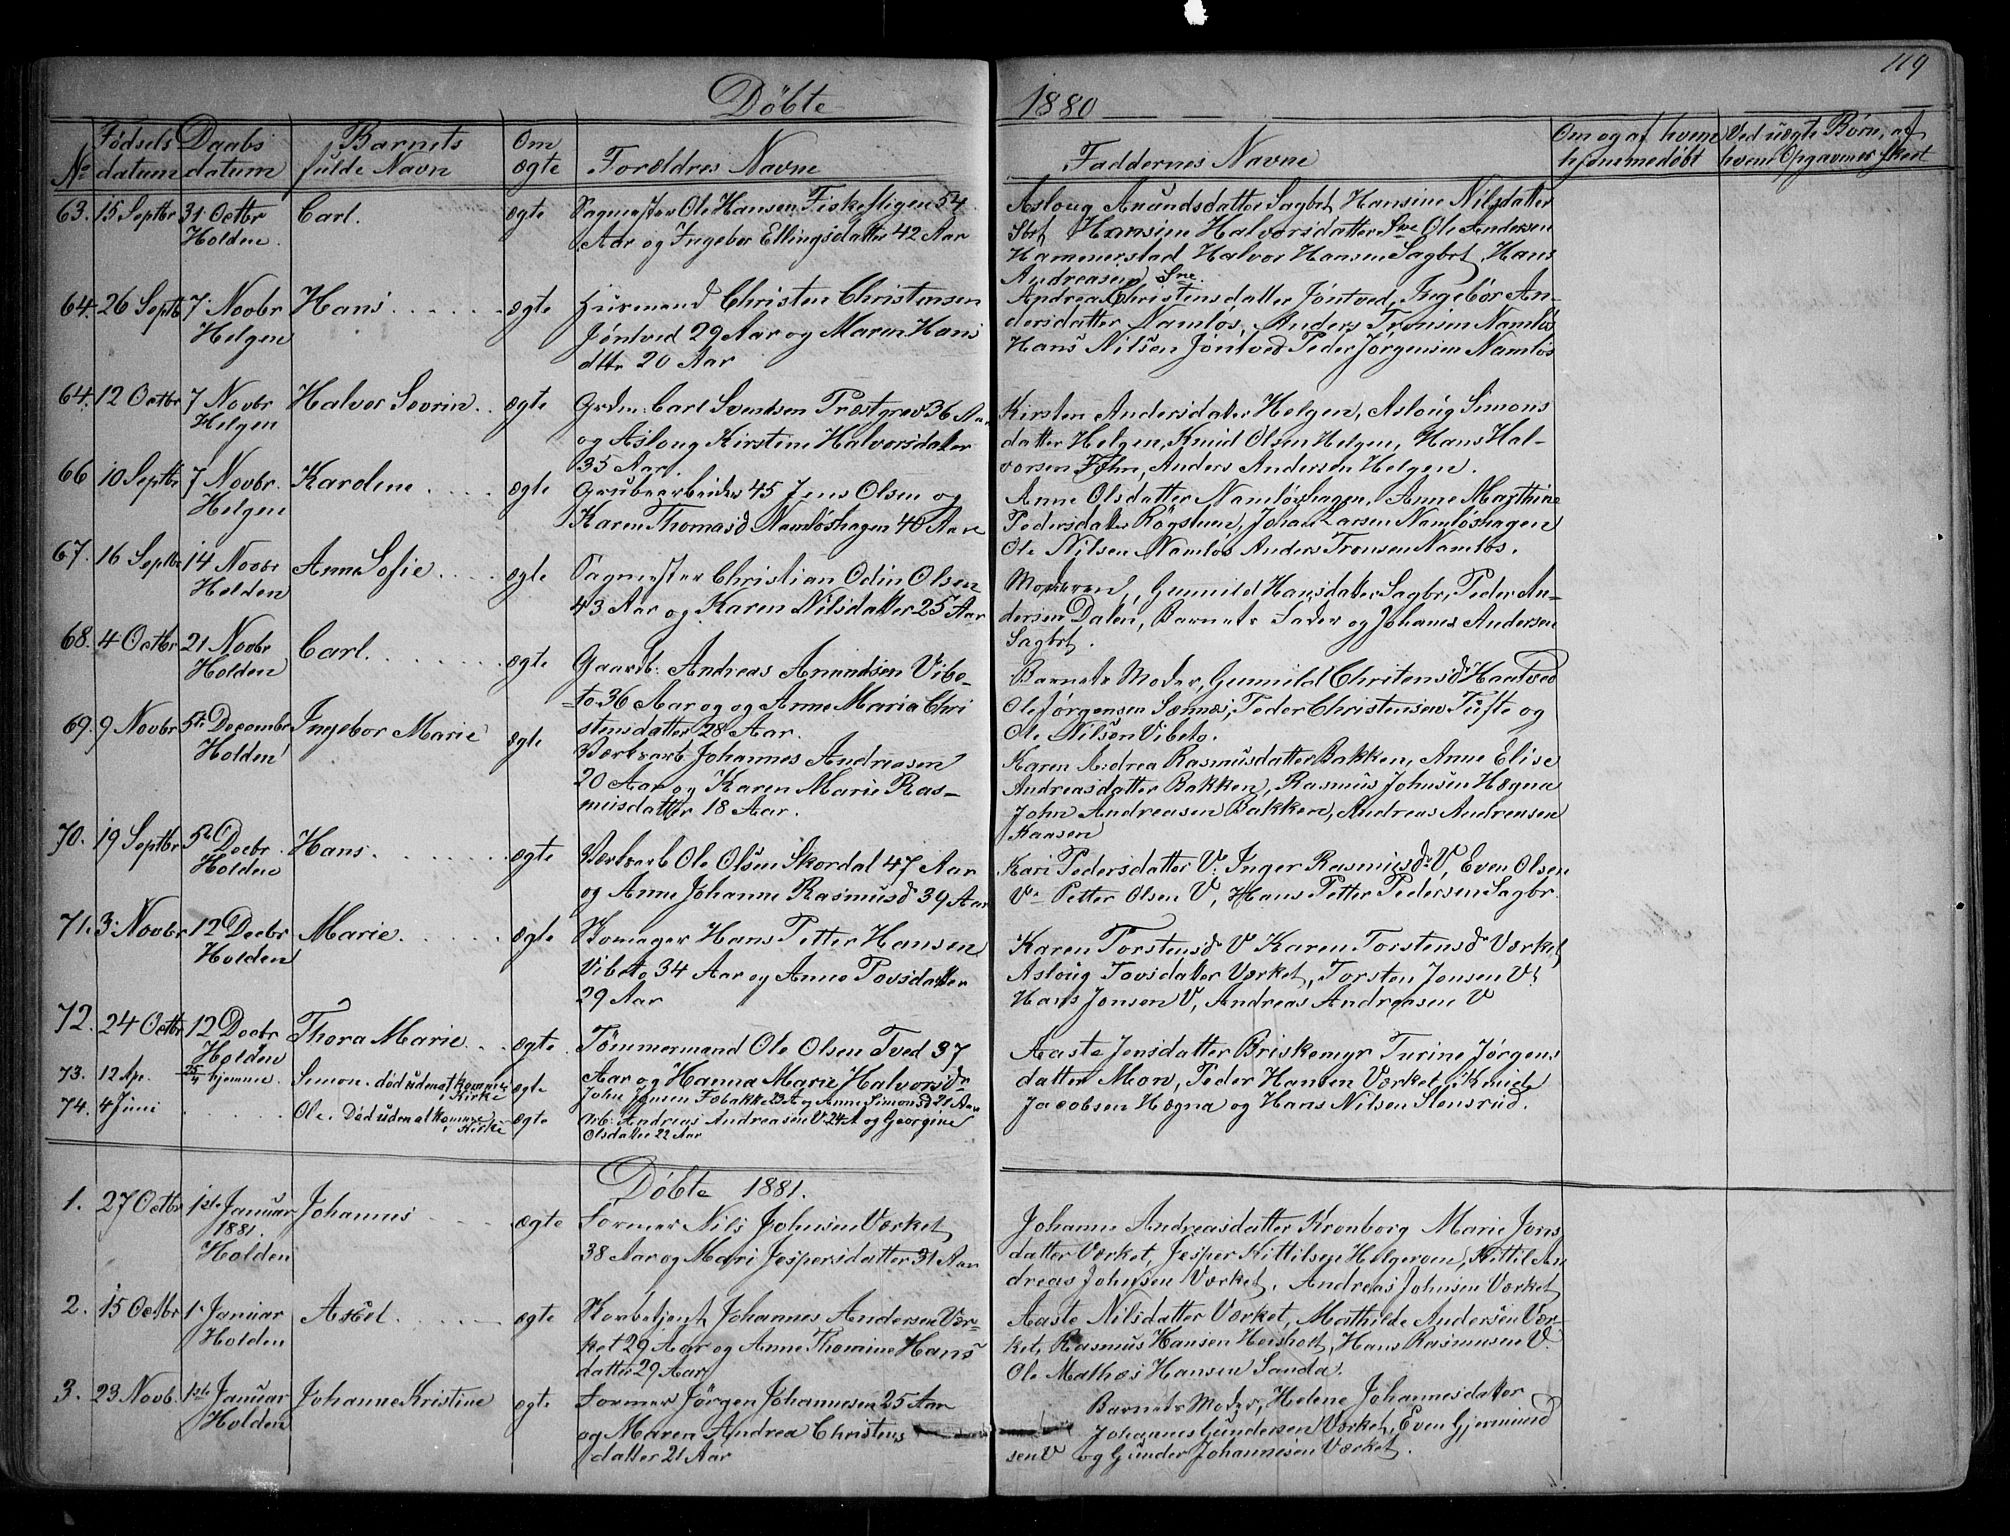 119
Döbte 1880
No
Fødsels datum
Daabs datum
Barnets fulde Navn
Om ægte
Forældres Navne
Faddernes Navne
Om og af hvem hjemmedøbt
Ved uægte Børn, af hvem Opgavnes skeet
63. 15 Septbr 31 Octbr Holden Carl. ægte
Sagmester Ole Hansen Fiskestigen 54
Aar og Ingebor Ellingsdatter 42 Aar
Asloug Amundsdatter Sagbrt Hansine Nilsdatter
Sbrt Hansine Halvorsdatter Sne Ole Andersen
Hammerstad Halvor Hansen Sagbrt, Hans
Andreasen Sne
64. 26 Septb 7 Novbr Helgen Hans ægte
Husmand Christen Christensen
Jøntved 29 Aar og Maren Hans
dttr 20 Aar
Andrea Christensdatter Jøntved, Ingebor An-
dersdatter Namløs, Anders Tronsen Namløs
Hans Nilsen Jøntved Peder Jørgensen Namløs
64. 12 Octbr 7 Novbr Helgen Halvor Sevrin ægte
Grdm. Carl Svendsen Præstgrev 36 Aar
og Asloug Kirstine Halvorsdater
35 Aar
Kirsten Andersdater Helgen, Asloug Simons
datter Helgen, Knud Olsen Helgen, Hans Hal-
vorsen Fehn, Anders Andersen Helgen.
66 10 Septbr 7 Novbr. Helgen Karoline ægte
Grubearbeider 45 Jens Olsen og
Karen Thomasd Namløshagen 40 Aar
Anne Olsdatter Namløshagen, Anne Marthine
Pedersdatter Røgsluen, Johan Larsen Namløshagen
Ole Nilsen Namløs Anders Tronsen Namløs.
67. 16 Septbr 14 Novbr Holden Anne Sofie ægte
Sagmester Christian Odin Olsen
43 Aar og Karen Nilsdatter 25 Aar
Moderen, Gunnild Hansdatter Sagbr, Peder An-
dersen Dalen, Barnets Fader og Johanes Andersen
Sagbrt.
68. 4 Octbr 21 Novbr Holden Carl. ægte
Gaardb. Andreas Amundsen Vibe-
to 36 Aar og og Anne Maria Chri
stensdatter 28 Aar.
Barnets Moder, Gunnild Christensdr Haatved
Ole Jørgensen Sannes, Peder Christensen Tufte og
Ole Nilsen Vibeto.
69. 9 Novbr 5te Decembr Holden Ingebor Marie ægte
Værksarb Johannes Andreasen
20 Aar og Karen Marie Ras-
musdatter 18 Aar.
Karen Andrea Rasmusdatter Bakken, Anne Elise
Andreasdatter Bakken, Rasmus Johnsen Hægna
John Andreasen Bakken, Andreas Andreasen
Kaasen
70. 19 Septbr 5te Decbr. Holden Hans. ægte
Værksarb Ole Olsen Skordal 47 Aar
og Anne Johanne Rasmusd 39 Aar
Kari Pedersdatter V. Inger Rasmusdr V, Even Olsen
V. Petter Olsen V, Hans Petter Pedersen Sagbr.
71. 3 Novbr 12 Decbr Holden Marie. ægte
Bomager Hans Petter Hansen
Vibeto 34 Aar og Anne Tovsdatter
29 Aar
Karen Torstensdr V Karen Torstensdr Værket
Asloug Tovsdatter Værket, Torsten Jensen V.
Hans Jonsen V, Andreas Andreasen V
72. 24 Octbr 12 Decbr Holden Thora Marie. ægte
Tömmermand Ole Olsen Tved 37
Aar og Hanna Marie Halvorsdr
Aaste Jensdatter Briskemyr Turine Jørgens
datter Moen, Peder Hansen Værket, Knud
Jacobsen Hægna og Hans Nilsen Stensrud.
73. 12 Apr. hjemme. Simon. død uden at komme i Kirke ægte
John Jensen Fæbakke 23 A og Anne Simonsd 21 Aar
74. 4 Juni Ole. Död uden at komme i Kirke ægte
Arb. Andreas Andreasen V. 24 A og Georgine
Olsdatter 22 Aar
Döbte 1881.
1. 27 Octbr 1ste Januar 1881. Holden Johannes ægte
Former Nils Johnsen Værket
38 Aar og Mari Jespersdatter 31 Aar
Johanne Andreasdatter Kronborg Marie Jons
datter Værket, Jesper Kittilsen Helgeroen, Kittil An
dreas Johnsen Værket, Andreas Johnsen Værket
2. 15 Octbr 1. Januar Holden Axel ægte
Kontorbetjent Johannes Andersen Vær-
ket 29 Aar og Anne Thomine Hans
datter 29 Aar
Aaste Nilsdatter Værket, Mathilde Andersen Vær-
ket, Rasmus Hansen Hersholt, Hans Rasmusen V.
Ole Mathæs Hansen Sanda.
3. 23 Novb. 1ste Januar Holden Johanne Kristine ægte
Former Jörgen Johannesen 25 Aar
og Maren Andrea Christens
datter 21 Aar
Barnets Moder, Helene Johannesdatter
Johannes Gundersen Værket, Even Gjermund
sen V og Gunder Johannesen Værket.